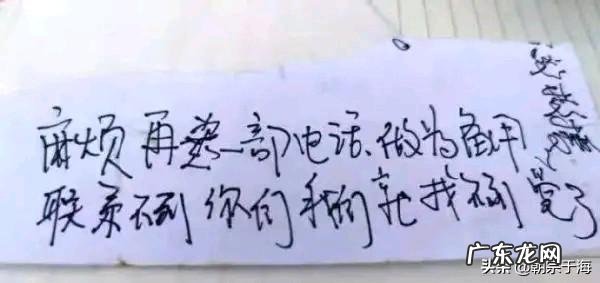 麻烦再装一部电话、做为备用
联系不到你们我们就找不到
觉了
广东龙网
头条 @朝宗于海